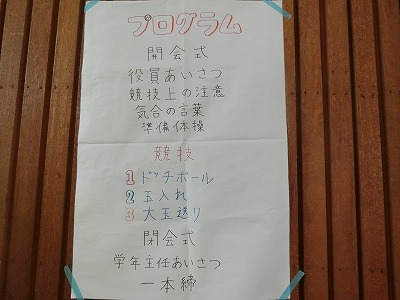 プログラム
開会式
役員あいさつ
競技上の注意
気合の言葉
準備体操
競技
1 ドッチボール
2 玉入れ
3 大玉送り
閉会式
学年主任あいさつ
一本締